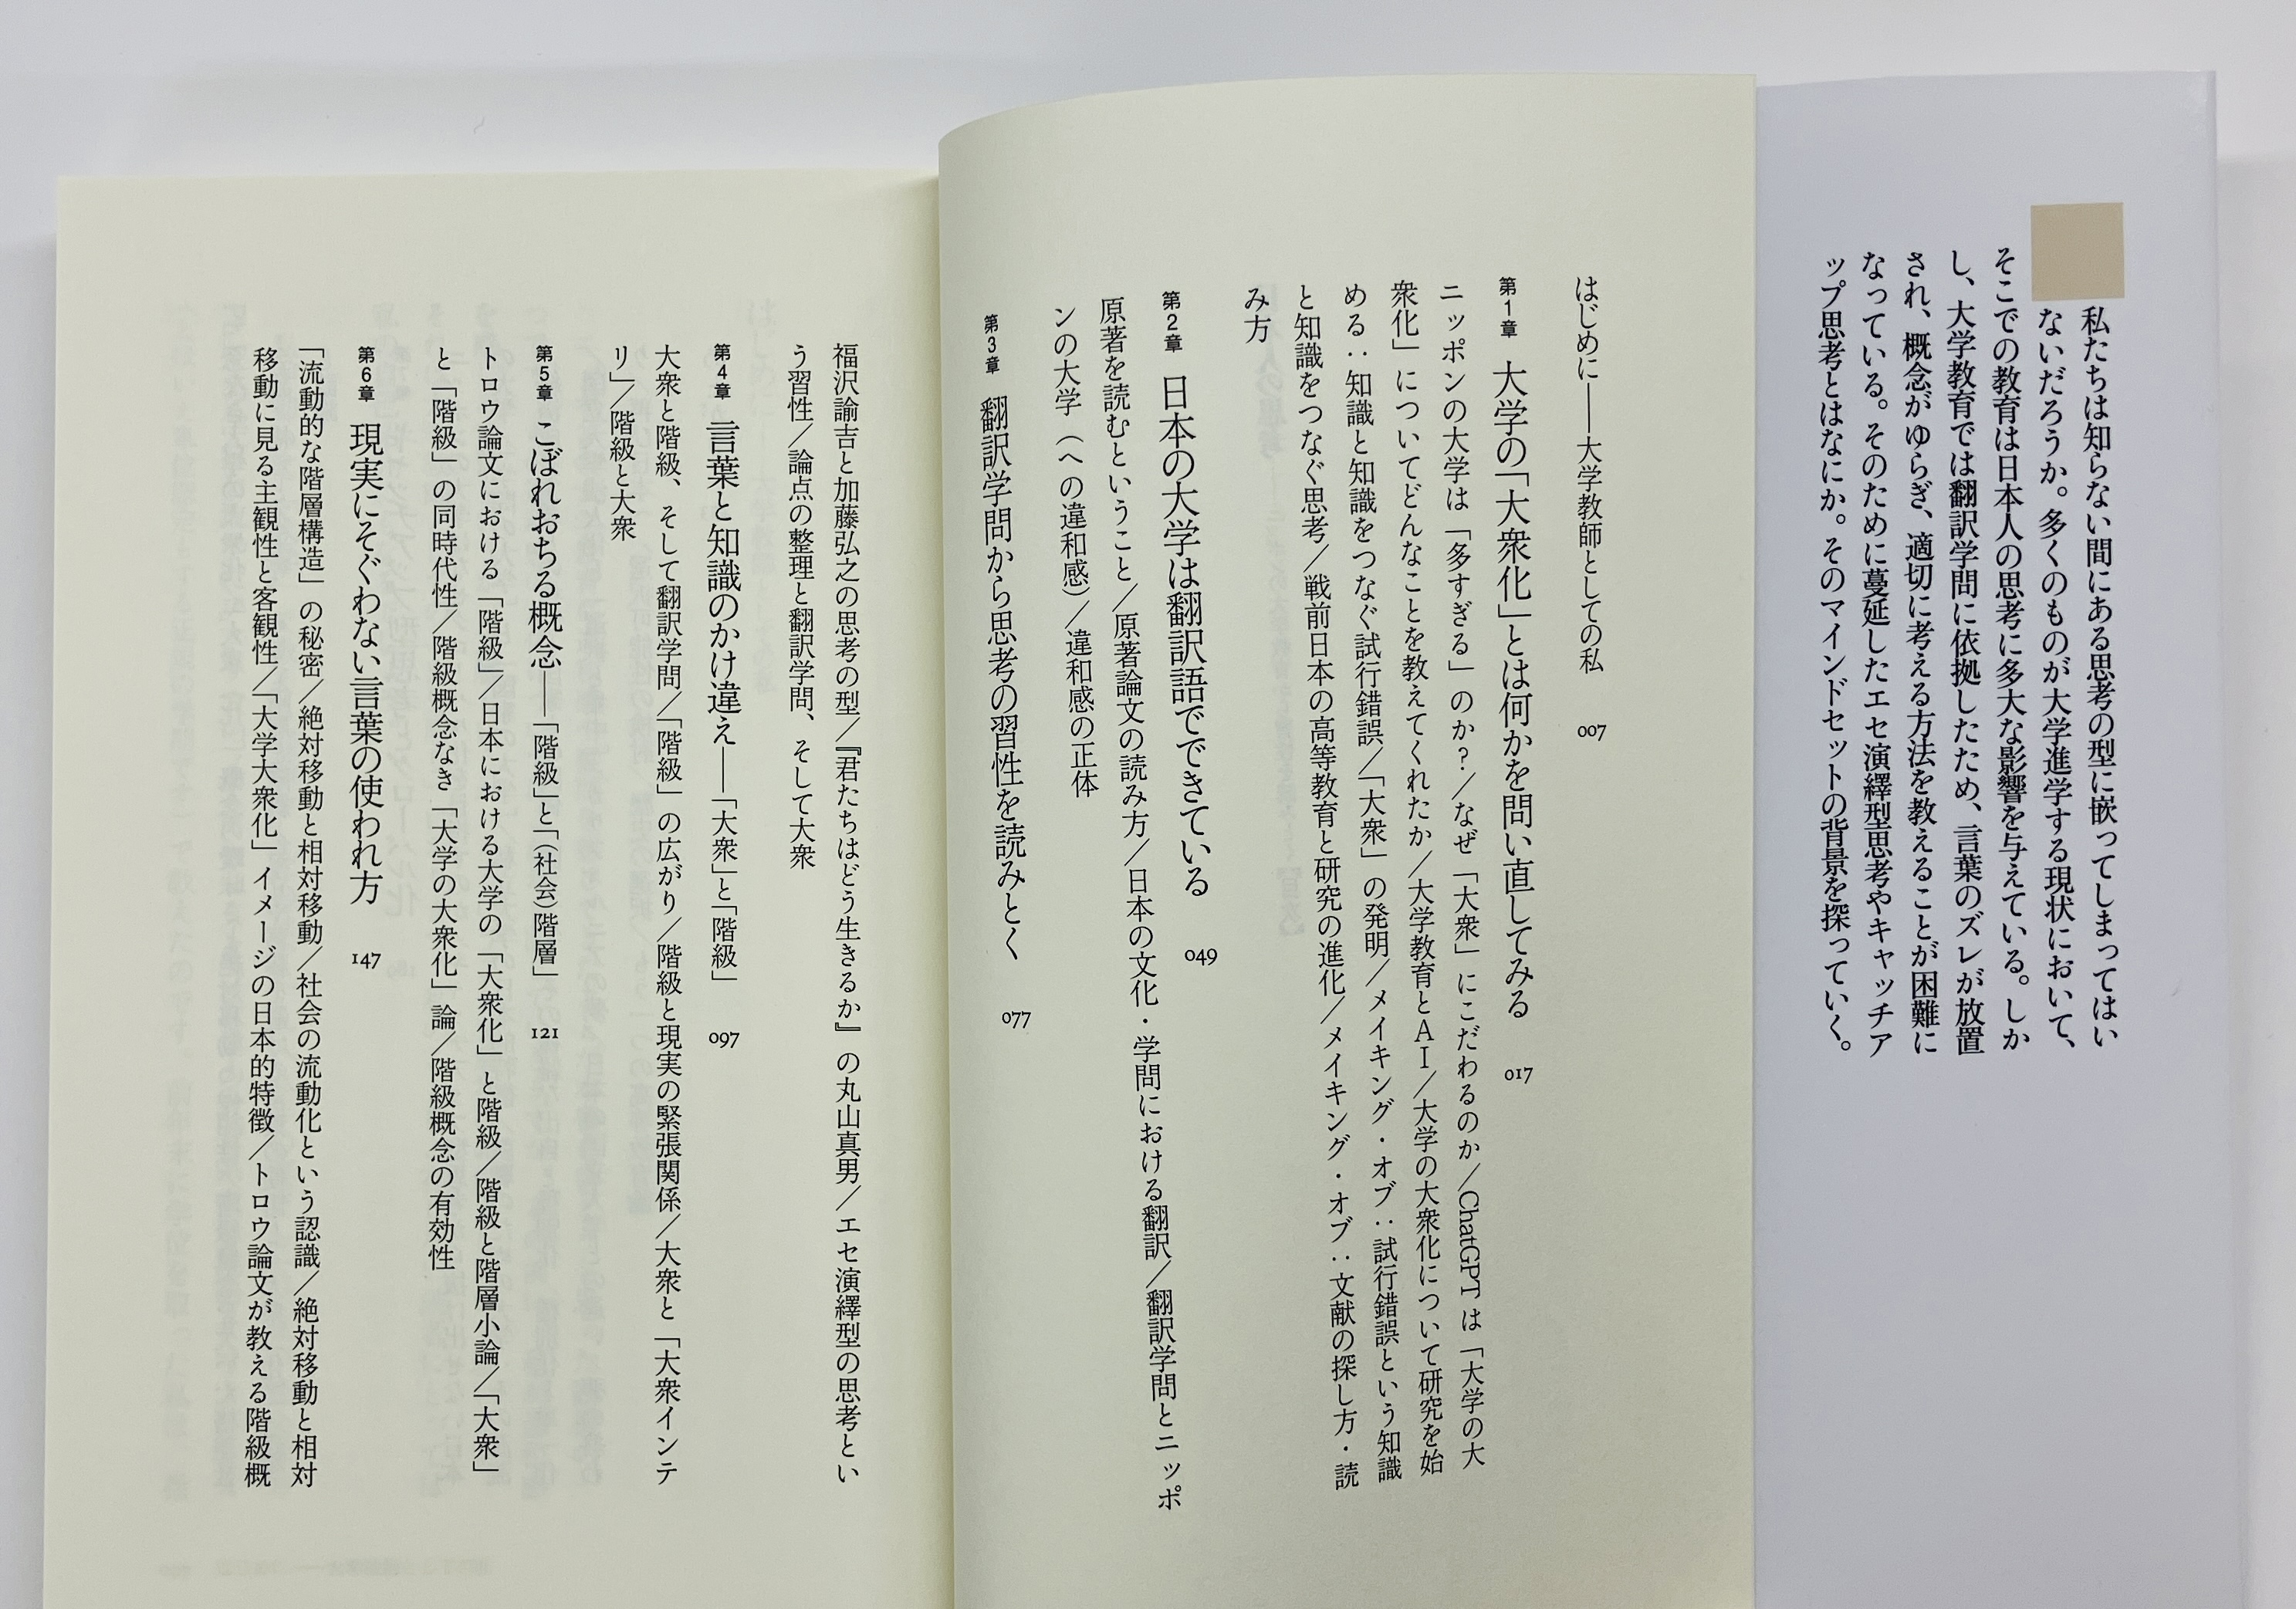 私たちは知らない間にある思考の型に嵌ってしまってはい
ないだろうか。多くのものが大学進学する現状において、
そこでの教育は日本人の思考に多大な影響を与えている。しか
し、大学教育では翻訳学問に依拠したため、言葉のズレが放置
され、概念がゆらぎ、適切に考える方法を教えることが困難に
なっている。そのために蔓延したエセ演繹型思考やキャッチア
ップ思考とはなにか。そのマインドセットの背景を探っていく。
はじめに――大学教師としての私 007
第1章 大学の「大衆化」とは何かを問い直してみる 017
ニッポンの大学は「多すぎる」のか?/なぜ「大衆」にこだわるのか/ChatGPTは「大学の大
衆化」についてどんなことを教えてくれたか/大学教育とAI/大学の大衆化について研究を始
める：知識と知識をつなぐ試行錯誤/「大衆」の発明/メイキング・オブ：試行錯誤という知識
と知識をつなぐ思考/戦前日本の高等教育と研究の進化/メイキング・オブ：文献の探し方・読
み方
第2章 日本の大学は翻訳語でできている 049
原著を読むということ/原著論文の読み方/日本の文化・学問における翻訳/翻訳学問とニッポ
ンの大学（への違和感）/違和感の正体
第3章 翻訳学問から思考の習性を読みとく 077
福沢諭吉と加藤弘之の思考の型/『君たちはどう生きるか』の丸山真男/エセ演繹型の思考とい
う習性/論点の整理と翻訳学問、そして大衆
第4章 言葉と知識のかけ違え――「大衆」と「階級」 097
大衆と階級、そして翻訳学問/「階級」の広がり/階級と現実の緊張関係/大衆と「大衆インテ
リ」/階級と大衆
第5章 こぼれおちる概念――「階級」と「（社会）階層」 121
トロウ論文における「階級」/日本における大学の「大衆化」と階級/階級と階層小論/「大衆」
と「階級」の同時代性/階級概念なき「大学の大衆化」論/階級概念の有効性
第6章 現実にそぐわない言葉の使われ方 147
「流動的な階層構造」の秘密/絶対移動と相対移動/社会の流動化という認識/絶対移動と相対
移動に見る主観性と客観性/「大学大衆化」イメージの日本的特徴/トロウ論文が教える階級概